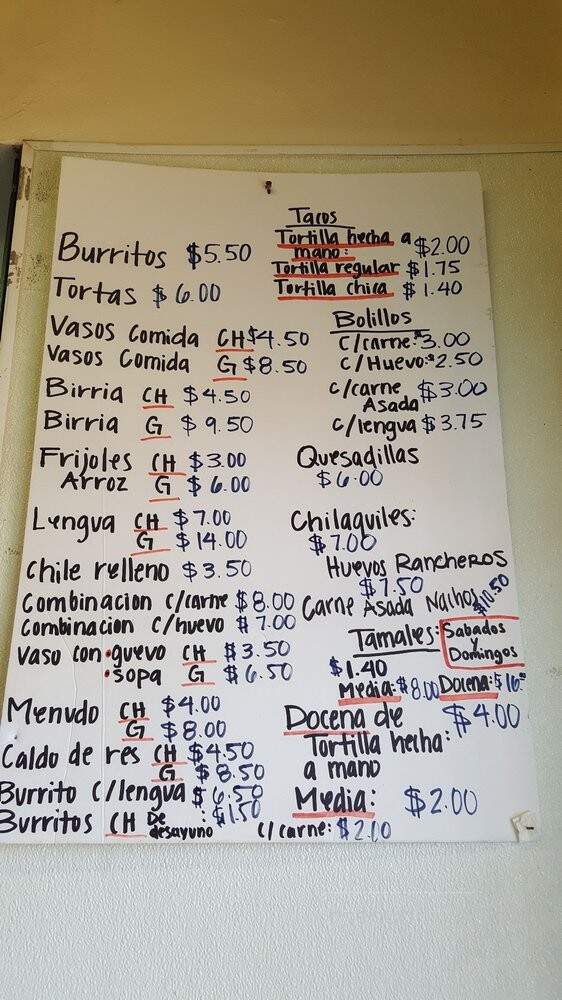 Burritos $5.50
Tortas $6.00
Vasos Comida CH $4.50
Vasos Comida G $8.50
Birria CH $4.50
Birria G $9.50
Frijoles CH $3.00
Arroz G $6.00
Lengua CH $7.00
G $14.00
Chile relleno $3.50
Combinacion c/carne $8.00
Combinacion c/huevo $7.00
Vaso con •guevo CH $3.50
•sopa G $6.50
Menudo CH $4.00
G $8.00
Caldo de res CH $4.50
G $8.50
Burrito c/lengua $6.50
Burritos CH De desayuno : $1.50 c/carne: $2.00
Tacos
Tortilla hecha a mano: $2.00
Tortilla regular $1.75
Tortilla chica $1.40
Bolillos
c/carne: $3.00
c/Huevo: $2.50
c/carne Asada $3.00
c/lengua $3.75
Quesadillas
$6.00
Chilaquiles:
$7.00
Huevos Rancheros
$7.50
Carne Asada Nachos $10.50
Tamales: Sabados y Domingos
$1.40
Media: $8.00 Docena: $16.00
Docena de $4.00
Tortilla hecha:
a mano
Media: $2.00